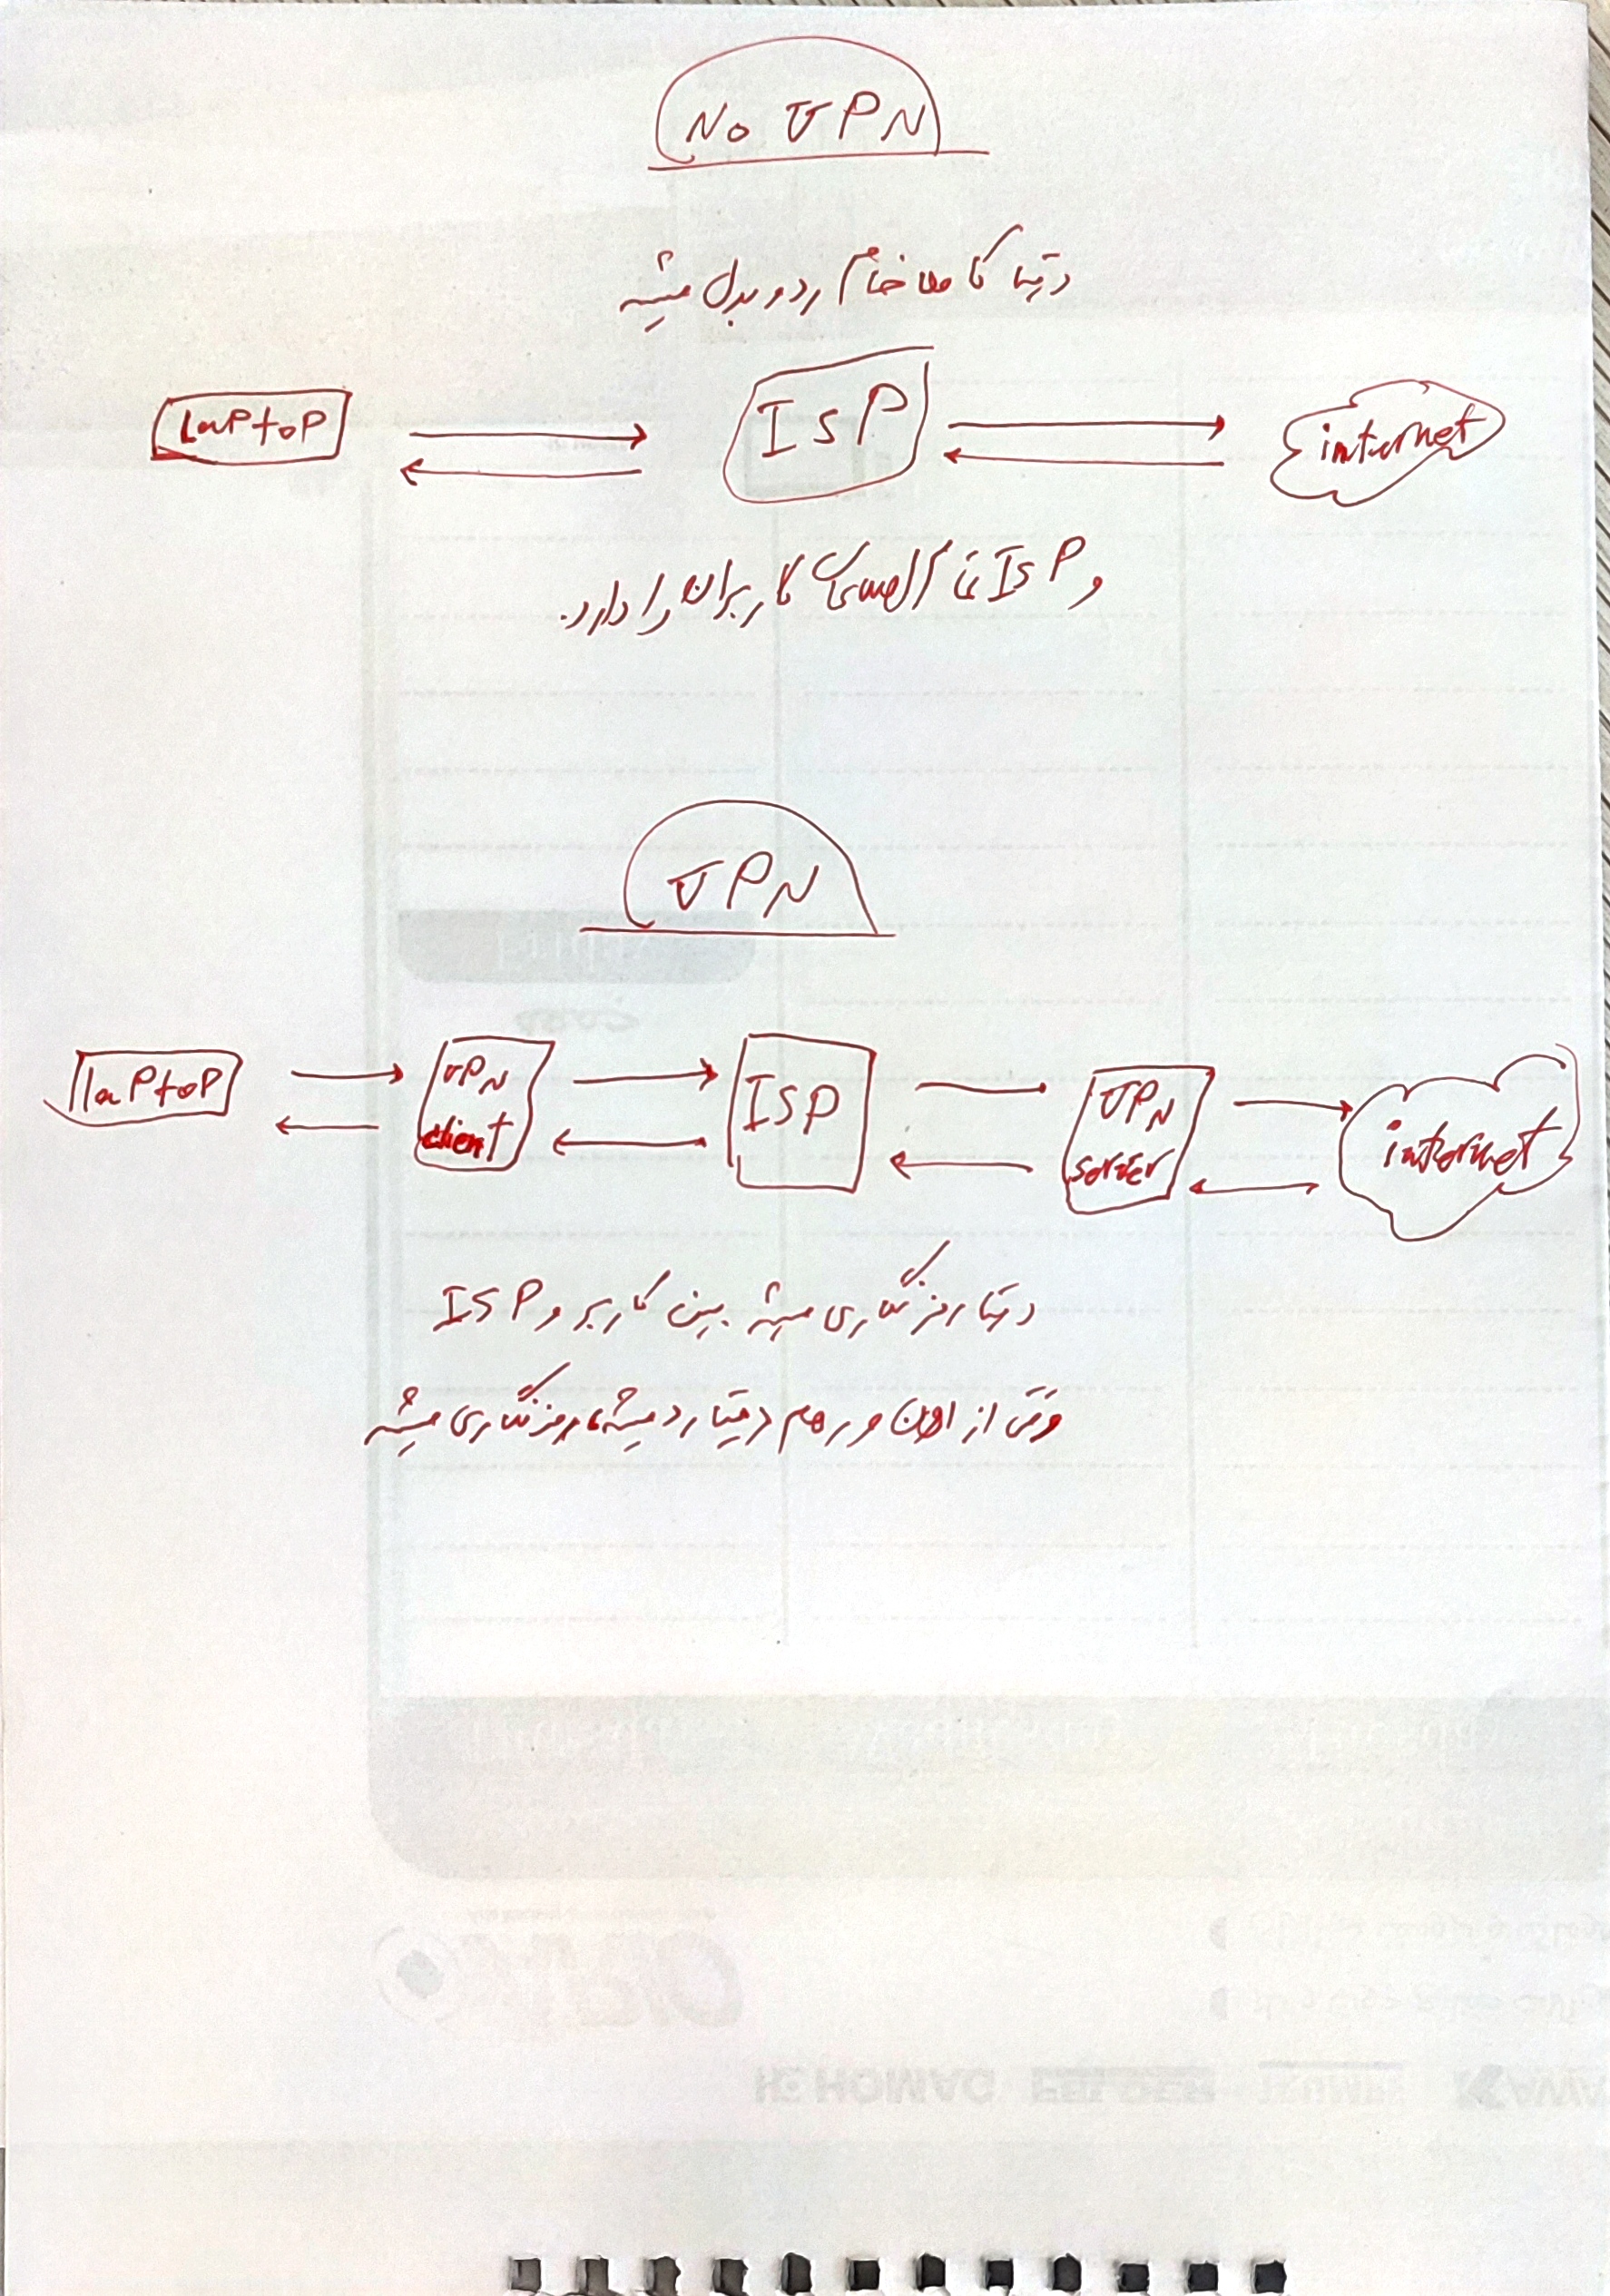 No VPN
دیتا کاملا خام رد و بدل میشه
LaPtoP
ISP
internet
و ISP تمام اطلاعات کاربران را دارد.
VPN
laPtoP
VPN client
ISP
VPN server
internet
دیتا رمزنگاری میشه بین کاربر و ISP
وقتی از اون ور هم دیتا رد میشه، رمزنگاری میشه